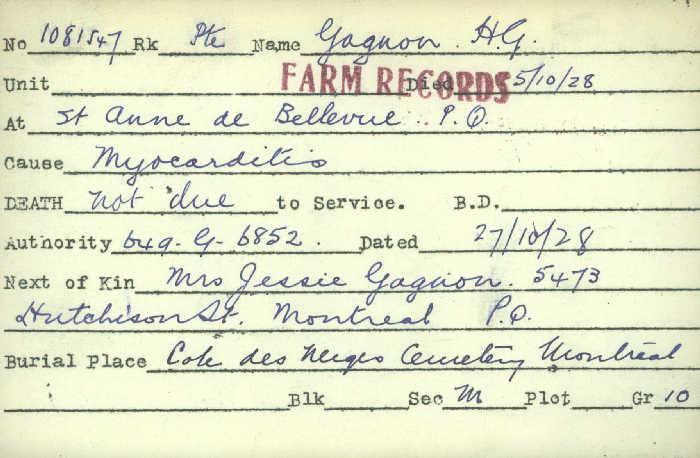 No 1081547 Rk Pte Name Gagnon H.G.
Unit FARM RECORDS Died 5/10/28
At St Anne de Bellevue P.Q.
Cause Myocarditis
DEATH not due to Service. B.D.
Authority 649-G-6852. Dated 27/10/28
Next of Kin Mrs Jessie Gagnon. 5473
Hutchison St. Montreal P.Q.
Burial Place Cote des Neiges Cemetery Montreal
Blk Sec M Plot Gr 10